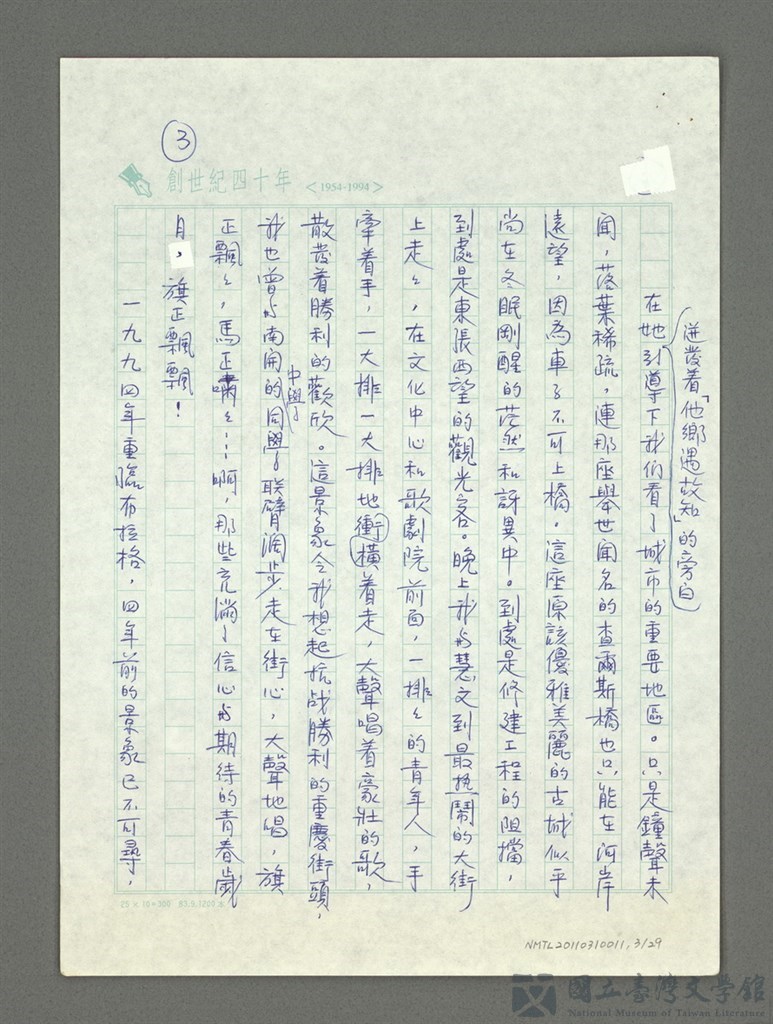 ③
創世紀四十年 <1954-1994>
迸發着「他鄉遇故知」的旁白
在她引導下我們看了城市的重要地區。只是鐘聲未
聞，落葉稀疏，連那座舉世聞名的查爾斯橋也只能在河岸
遠望，因為車子不可上橋。這座原該優雅美麗的古城似乎
尚在冬眠剛醒的茫然和訝異中。到處是修建工程的阻擋，
到處是東張西望的觀光客。晚上我与慧文到最熱鬧的大街
上走走，在文化中心和歌劇院前面，一排排的青年人，手
牽着手，一大排一大排地橫衝着走，大聲唱着豪壯的歌，
散發着勝利的歡欣。這景象令我想起抗战勝利的重慶街頭，
我也曾与南開中學的同學联臂濶步走在街心，大聲地唱，旗
正飄々，馬正嘯々……啊，那些充滿了信心与期待的青春歲
月，旗正飄飄！
一九九四年重臨布拉格，四年前的景象已不可尋，
25×10=300 83.5.1200本
NMTL20110310011, 3/29
國立臺灣文學館
National Museum of Taiwan Literature